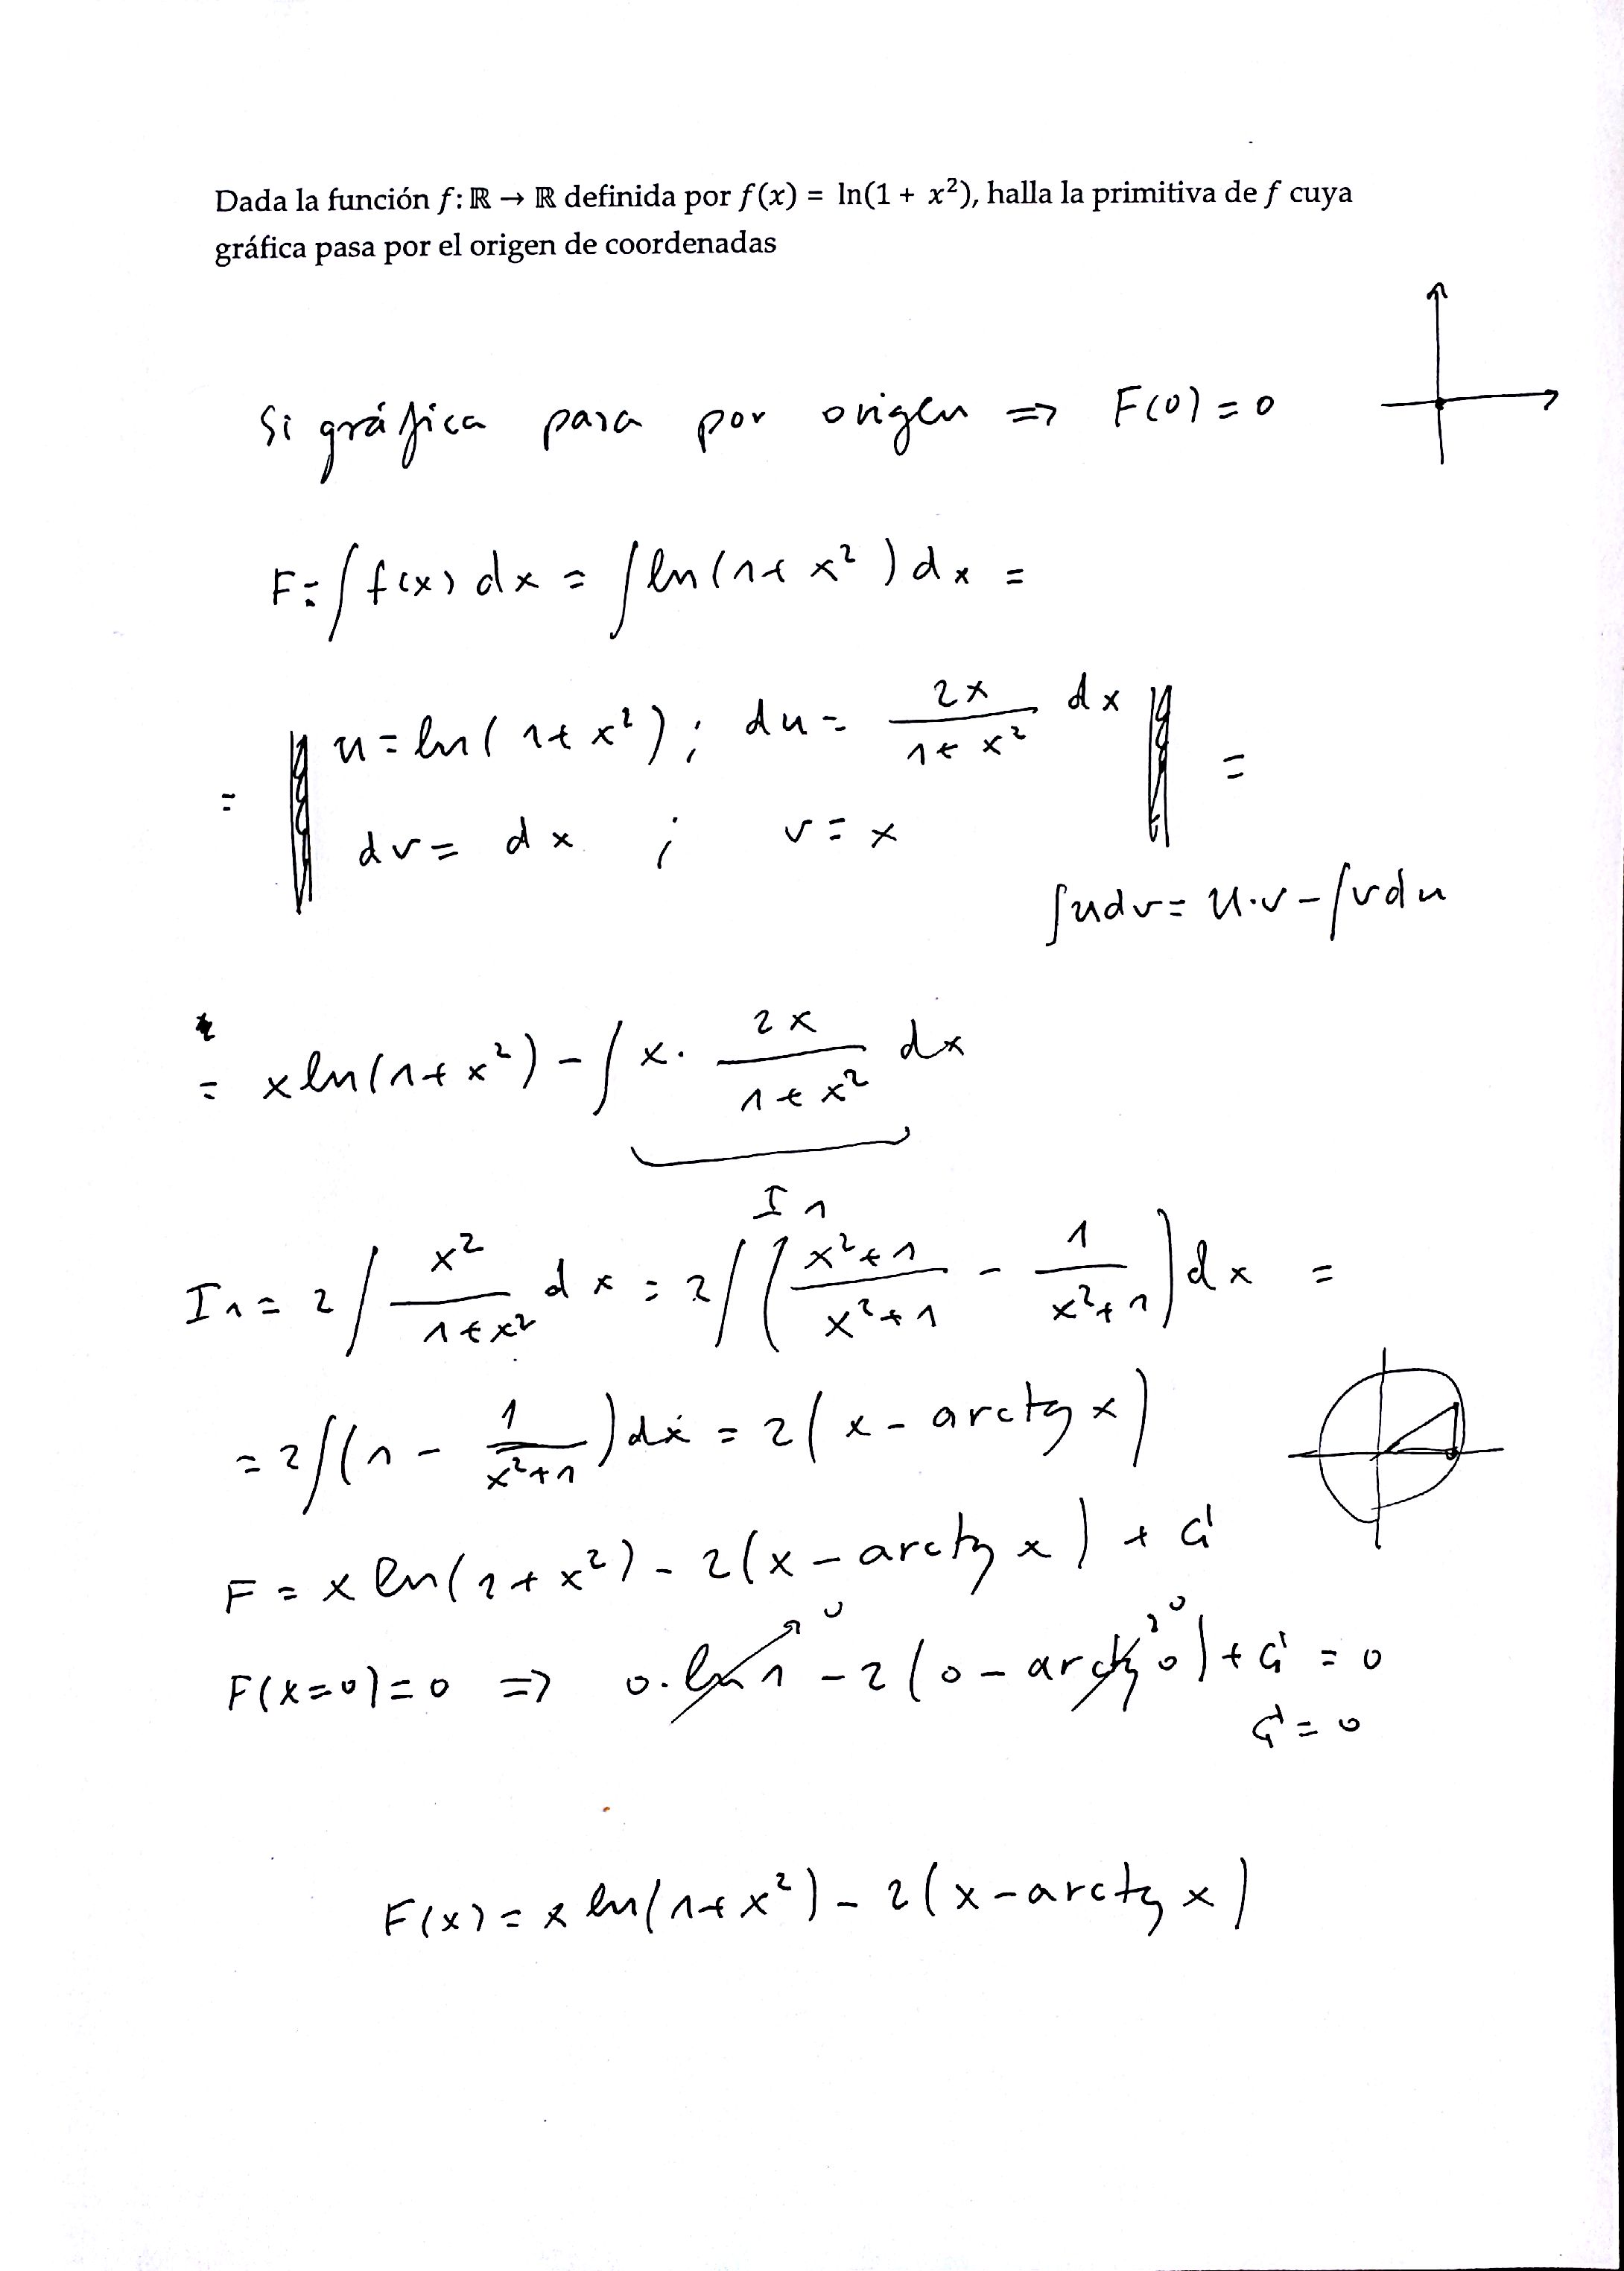 Dada la función f: ℝ → ℝ definida por f(x) = ln(1 + x²), halla la primitiva de f cuya
gráfica pasa por el origen de coordenadas
Si gráfica pasa por origen ⇒ F(0) = 0
F = ∫ f(x) dx = ∫ ln(1 + x²) dx =
= ‖ u = ln(1 + x²) ; du = 2x/(1 + x²) dx ‖ =
dv = dx ; v = x
∫ u dv = u · v - ∫ v du
= x ln(1 + x²) - ∫ x · 2x/(1 + x²) dx
I1
I1 = 2 ∫ x²/(1 + x²) dx = 2 ∫ ( (x² + 1)/(x² + 1) - 1/(x² + 1) ) dx =
= 2 ∫ (1 - 1/(x² + 1)) dx = 2 (x - arctg x)
F = x ln(1 + x²) - 2 (x - arctg x) + C
F(x=0) = 0 ⇒ 0 · ln 1 → 0 - 2 (0 - arctg 0 → 0) + C = 0
C = 0
F(x) = x ln(1 + x²) - 2 (x - arctg x)